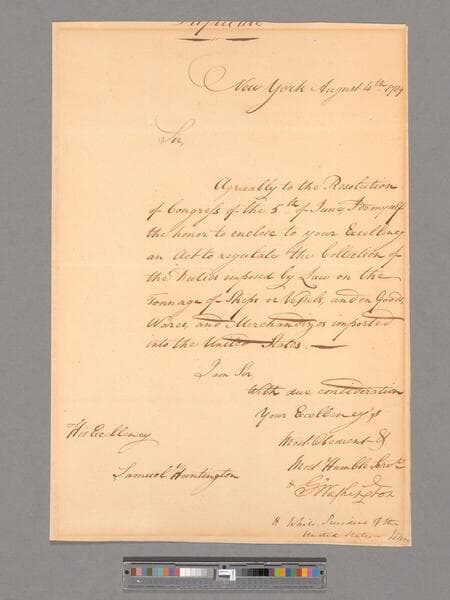 Duplicate
New York August 4th 1789
Sir,
Agreeally to the Resolution
of Congress of the 5th of June, I do myself
the honor to enclose to your Excellency
an Act to regulate the Collection of
the Duties imposed by Law on the
Tonnage of Ships or Vessels, and on Goods,
Wares, and Merchandizes imported
into the United States.
I am Sir,
With due consideration
Your Excellency's
Most Obedient &
Most Humble Servt
Go Washington
His Excellency
Samuel Huntington
While President of the
United States